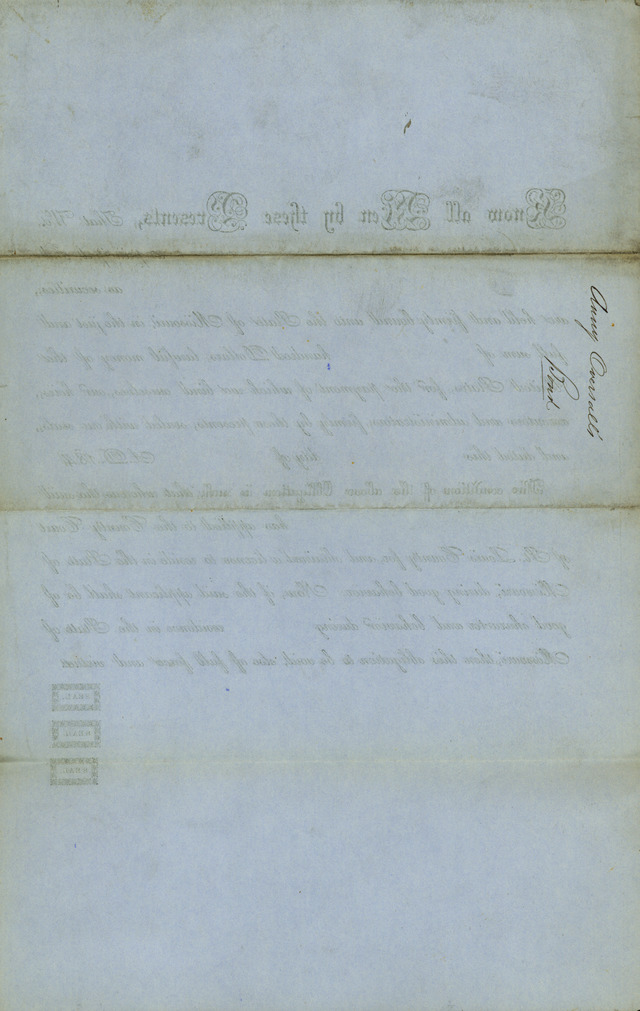 Anny Coursall's
Bond.
Know all Men by these Presents, That We,
as securities,
are held and firmly bound unto the State of Missouri, in the just and
full sum of hundred Dollars, lawful money of the
United States, for the payment of which we bind ourselves, our heirs,
executors and administrators, firmly by these presents, sealed with our seals,
and dated this day of A. D. 184
The condition of the above Obligation is such, that whereas the said
has applied to the County Court
of St. Louis County for, and obtained a license to reside in the State of
Missouri, during good behavior. Now, if the said applicant shall be of
good character and behavior during residence in the State of
Missouri, then this obligation to be void, else of full force and virtue.
SEAL.
SEAL.
SEAL.